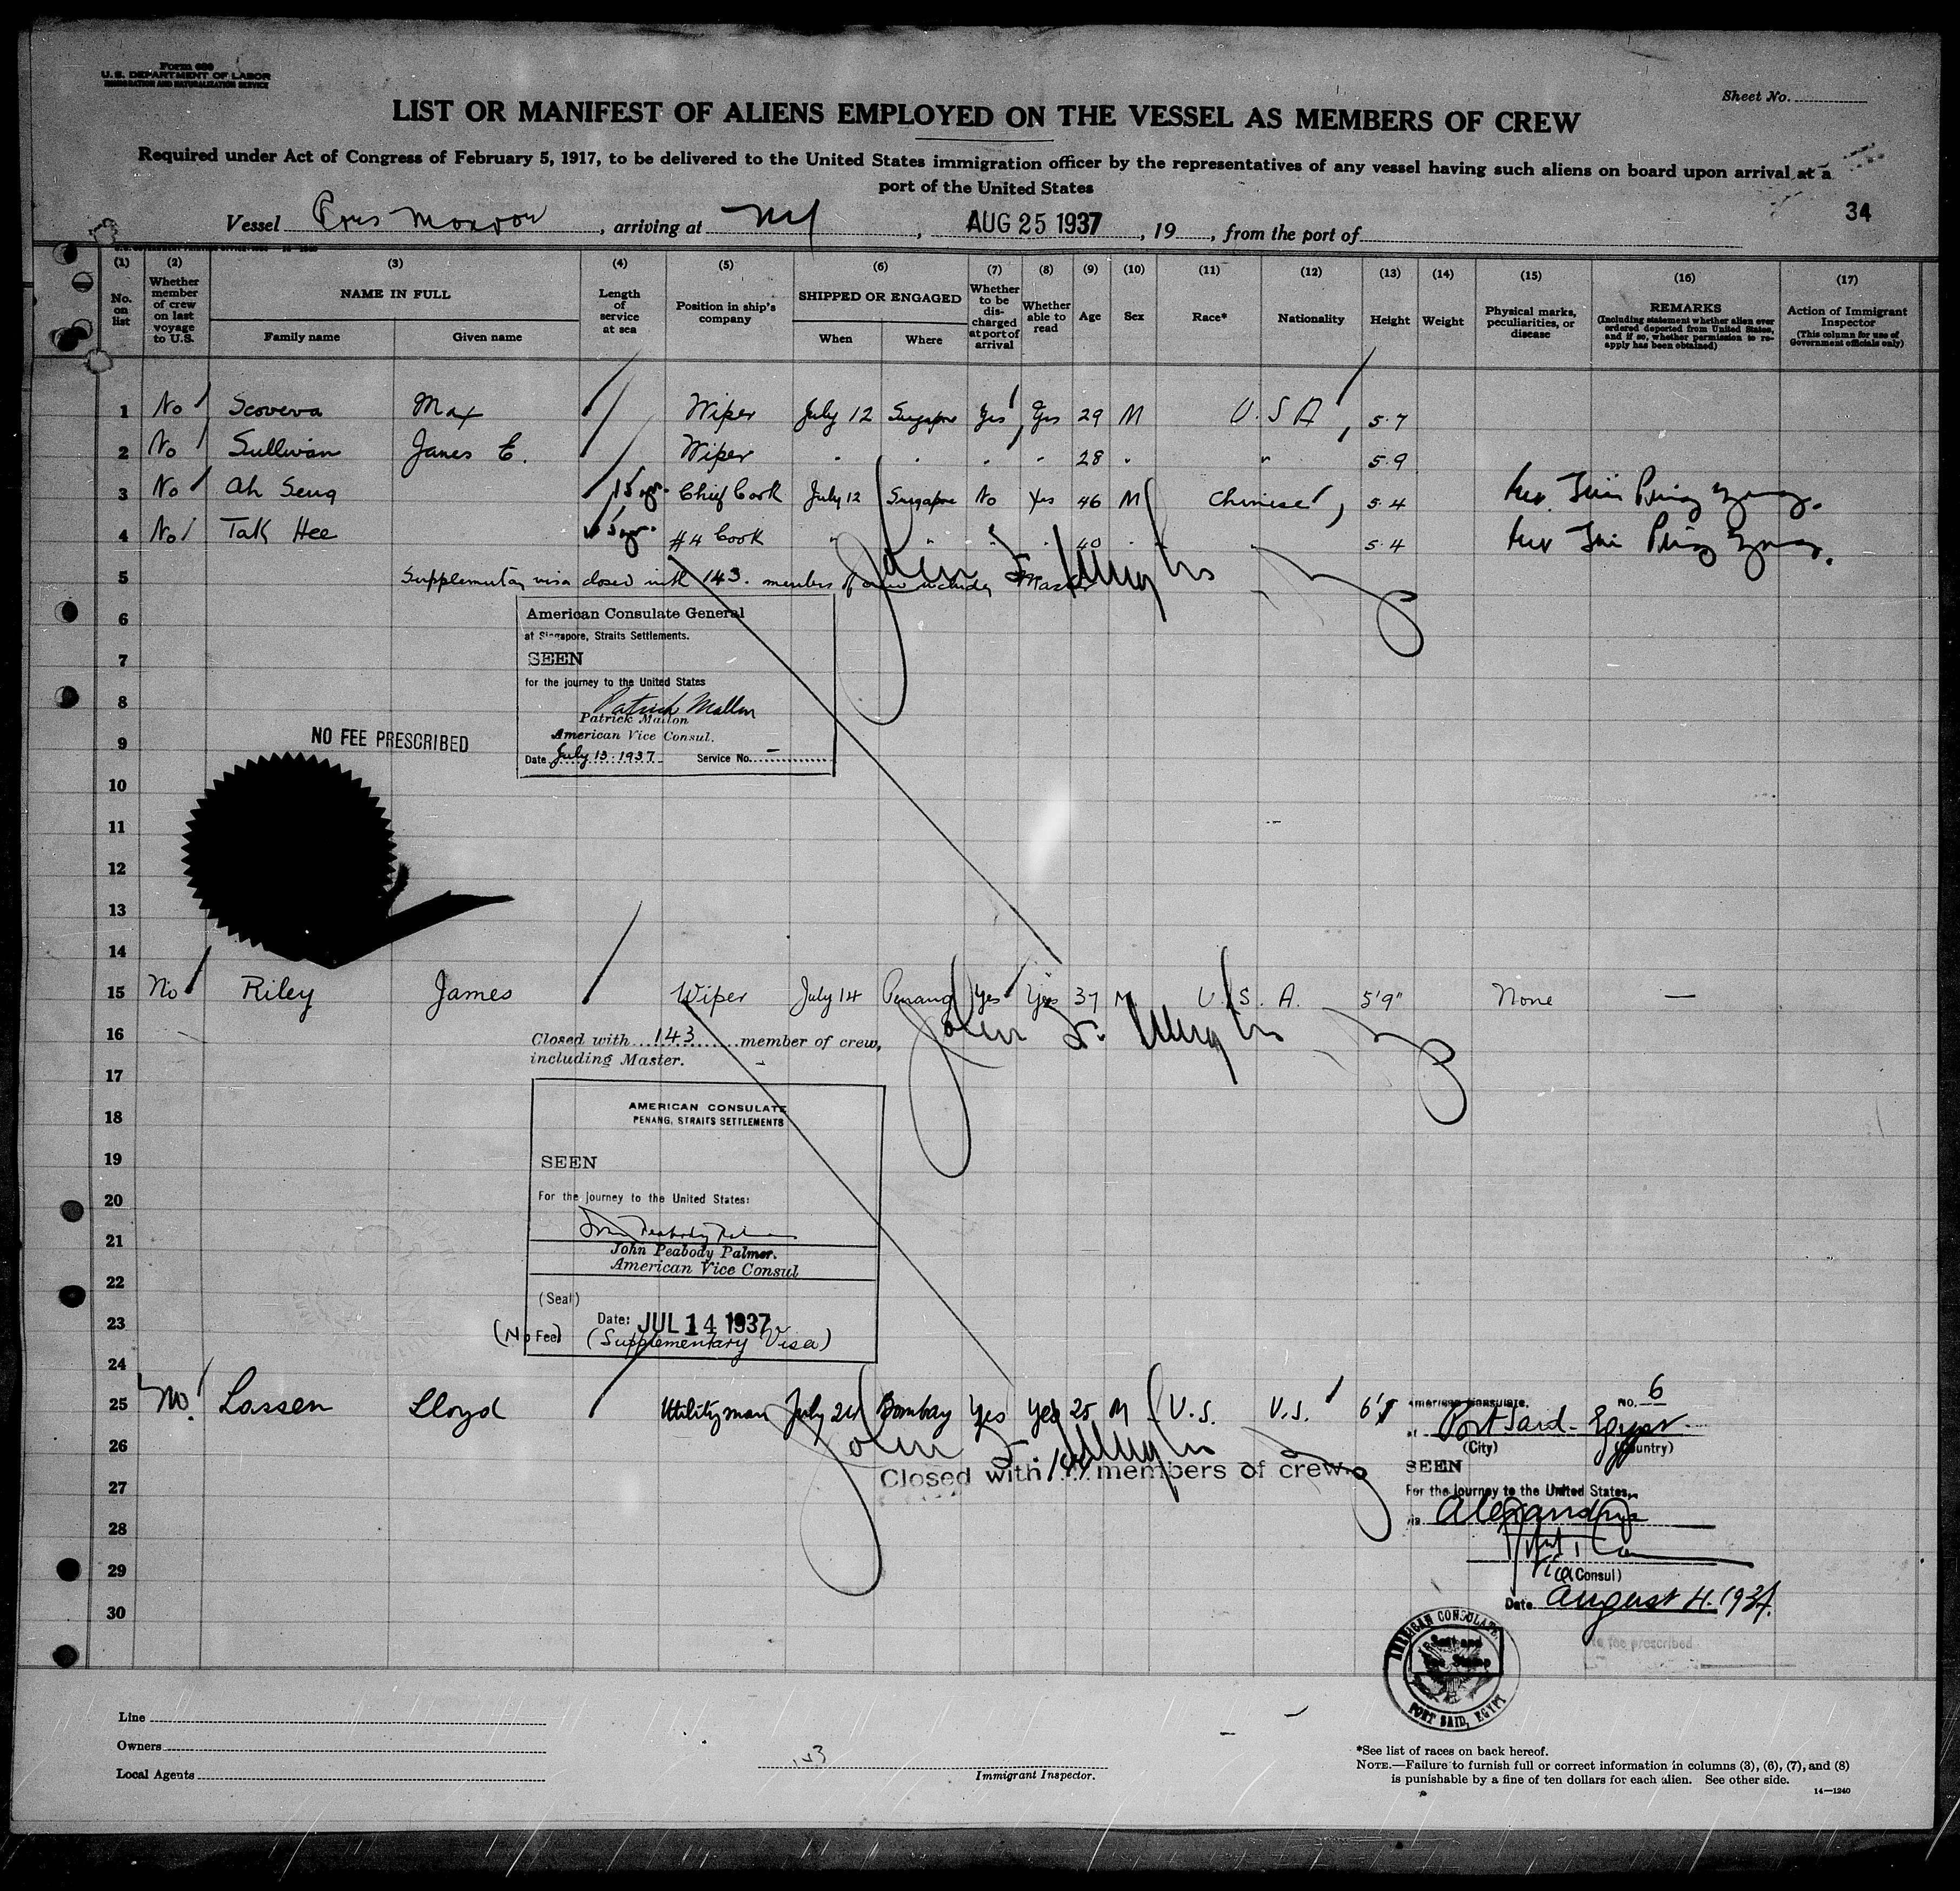 Form 680
U.S. DEPARTMENT OF LABOR
IMMIGRATION AND NATURALIZATION SERVICE
Sheet No.
LIST OR MANIFEST OF ALIENS EMPLOYED ON THE VESSEL AS MEMBERS OF CREW
Required under Act of Congress of February 5, 1917, to be delivered to the United States immigration officer by the representatives of any vessel having such aliens on board upon arrival at a
port of the United States
34
Vessel Pres Monroe, arriving at NY, AUG 25 1937, 19, from the port of
(1) (2) (3) (4) (5) (6) (7) (8) (9) (10) (11) (12) (13) (14) (15) (16) (17)
No. on list
Whether member of crew on last voyage to U.S.
NAME IN FULL
Family name Given name
Length of service at sea
Position in ship's company
SHIPPED OR ENGAGED
When Where
Whether to be discharged at port of arrival
Whether able to read
Age
Sex
Race*
Nationality
Height
Weight
Physical marks, peculiarities, or disease
REMARKS
(Including statement whether alien ever ordered deported from United States, and if so, whether permission to reapply has been obtained)
Action of Immigrant Inspector
(This column for use of Government officials only)
1 No Max Wiper July 12 Singapore Yes Yes 29 M U.S.A 5.7
2 No Sullivan James E. Wiper " " " " 28 " " 5.9
3 No Ah Seng 15 yr. Chief Cook July 12 Singapore No Yes 46 M Chinese 5.4
4 No Tak Hee 5 yr. #4 Cook " " " " 40 " " 5.4
5 Supplementary visa closed with 143 members of crew including Master
6 American Consulate General
at Singapore, Straits Settlements.
7 SEEN
for the journey to the United States
8 Patrick Mallon
Patrick Mallon
9 NO FEE PRESCRIBED American Vice Consul.
Date July 13-1937 Service No. –
10
11
12
13
14
15 No Riley James Wiper July 14 Penang Yes Yes 37 M U.S.A. 5'9" None —
16 Closed with 143 member of crew,
including Master.
17
18 AMERICAN CONSULATE
PENANG, STRAITS SETTLEMENTS
19 SEEN
20 For the journey to the United States:
21 John Peabody Palmer
John Peabody Palmer.
American Vice Consul
22
(Seal)
23 Date: JUL 14 1937
(No Fee) (Supplementary Visa)
24
25 No Lassen Lloyd Utilityman July 24 Bombay Yes Yes 25 M U.S. U.S.
American Consulate, No. 6
at Port Said - Egypt
(City) (Country)
26 SEEN
Closed with 144 members of crew.
27 For the journey to the United States,
via Alexandria
28
29 Vice Consul)
30 Date August 4. 1937.
AMERICAN CONSULATE
PORT SAID, EGYPT
No fee prescribed
Line
Owners
Local Agents
143
Immigrant Inspector.
*See list of races on back hereof.
NOTE.—Failure to furnish full or correct information in columns (3), (6), (7), and (8)
is punishable by a fine of ten dollars for each alien. See other side.
14—1240